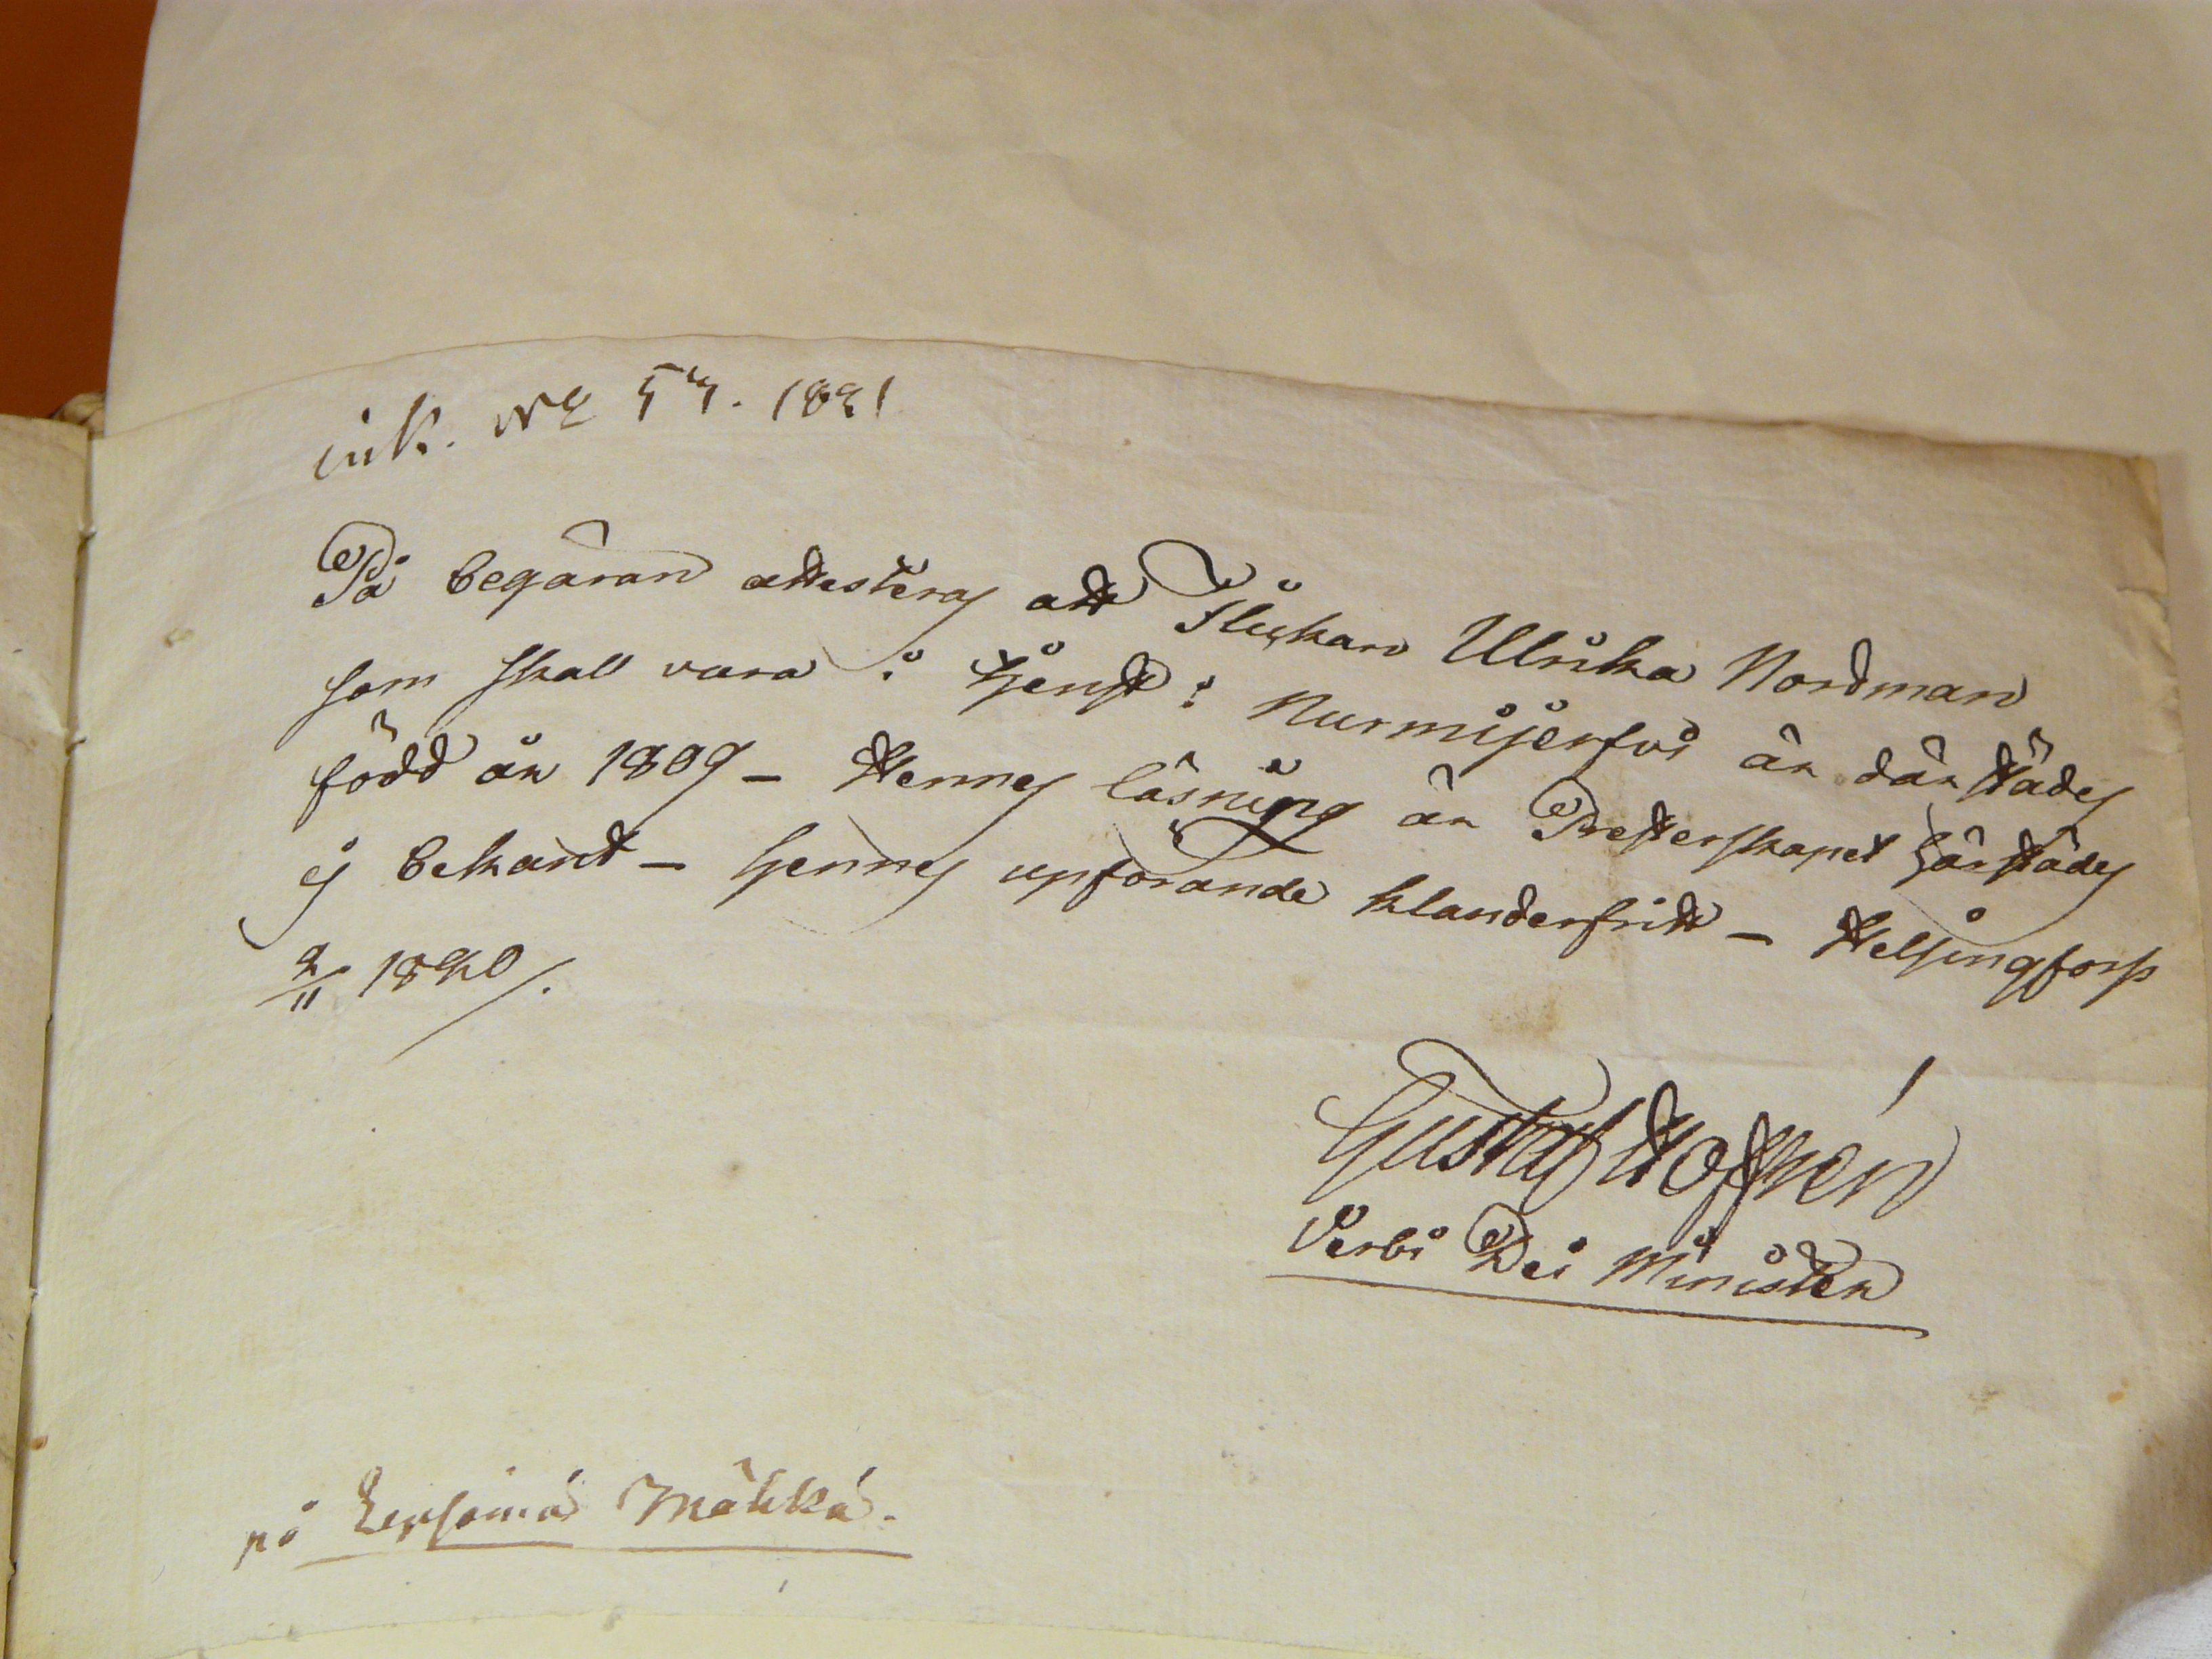 ink. N° 54. 1821
På begäran attesteras att Flickan Ulrika Nordman
som skall vara i tjenst i Nurmijerfvi är därstädes
född år 1809 – Hennes läsning är Presterskapet härstädes
ej bekant – hennes upförande klanderfritt – Helsingfors
2/11 1820/.
Gustaf Hoffrén
Verbi Dei Minister
på Lepsämä Mäkkä.